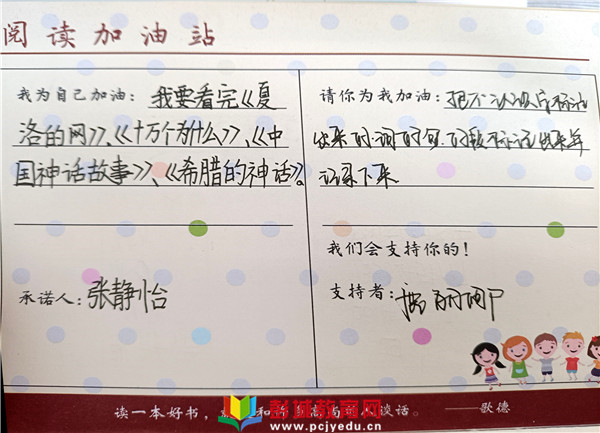 阅读加油站
我为自己加油：我要看完《夏
洛的网》、《十万个为什么》、《中
国神话故事》、《希腊的神话》。
承诺人：张静怡
请你为我加油：把不认识字标注
出来的词的句
下来
我们会支持你的！
支持者：
读一本好书，谈话。——歌德
彭建教育网
www.pcjyedu.cn